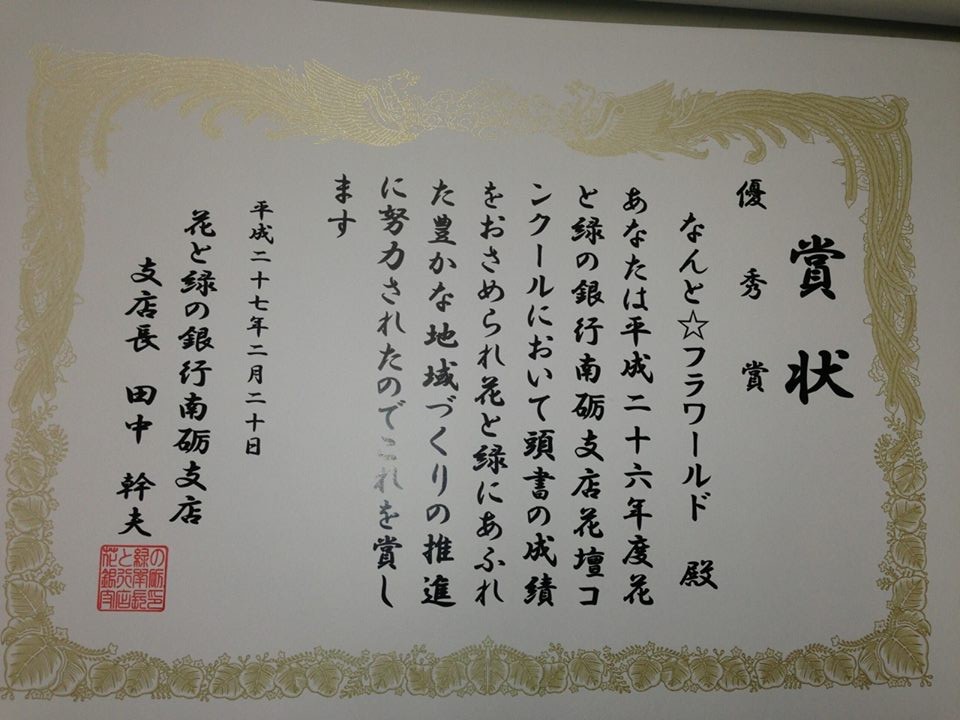 賞状
優秀賞
なんと☆フラワールド 殿
あなたは平成二十六年度花
と緑の銀行南砺支店花壇コ
ンクールにおいて頭書の成績
をおさめられ花と緑にあふれ
た豊かな地域づくりの推進
に努力されたのでこれを賞し
ます
平成二十七年二月二十日
花と緑の銀行南砺支店
支店長 田中 幹夫